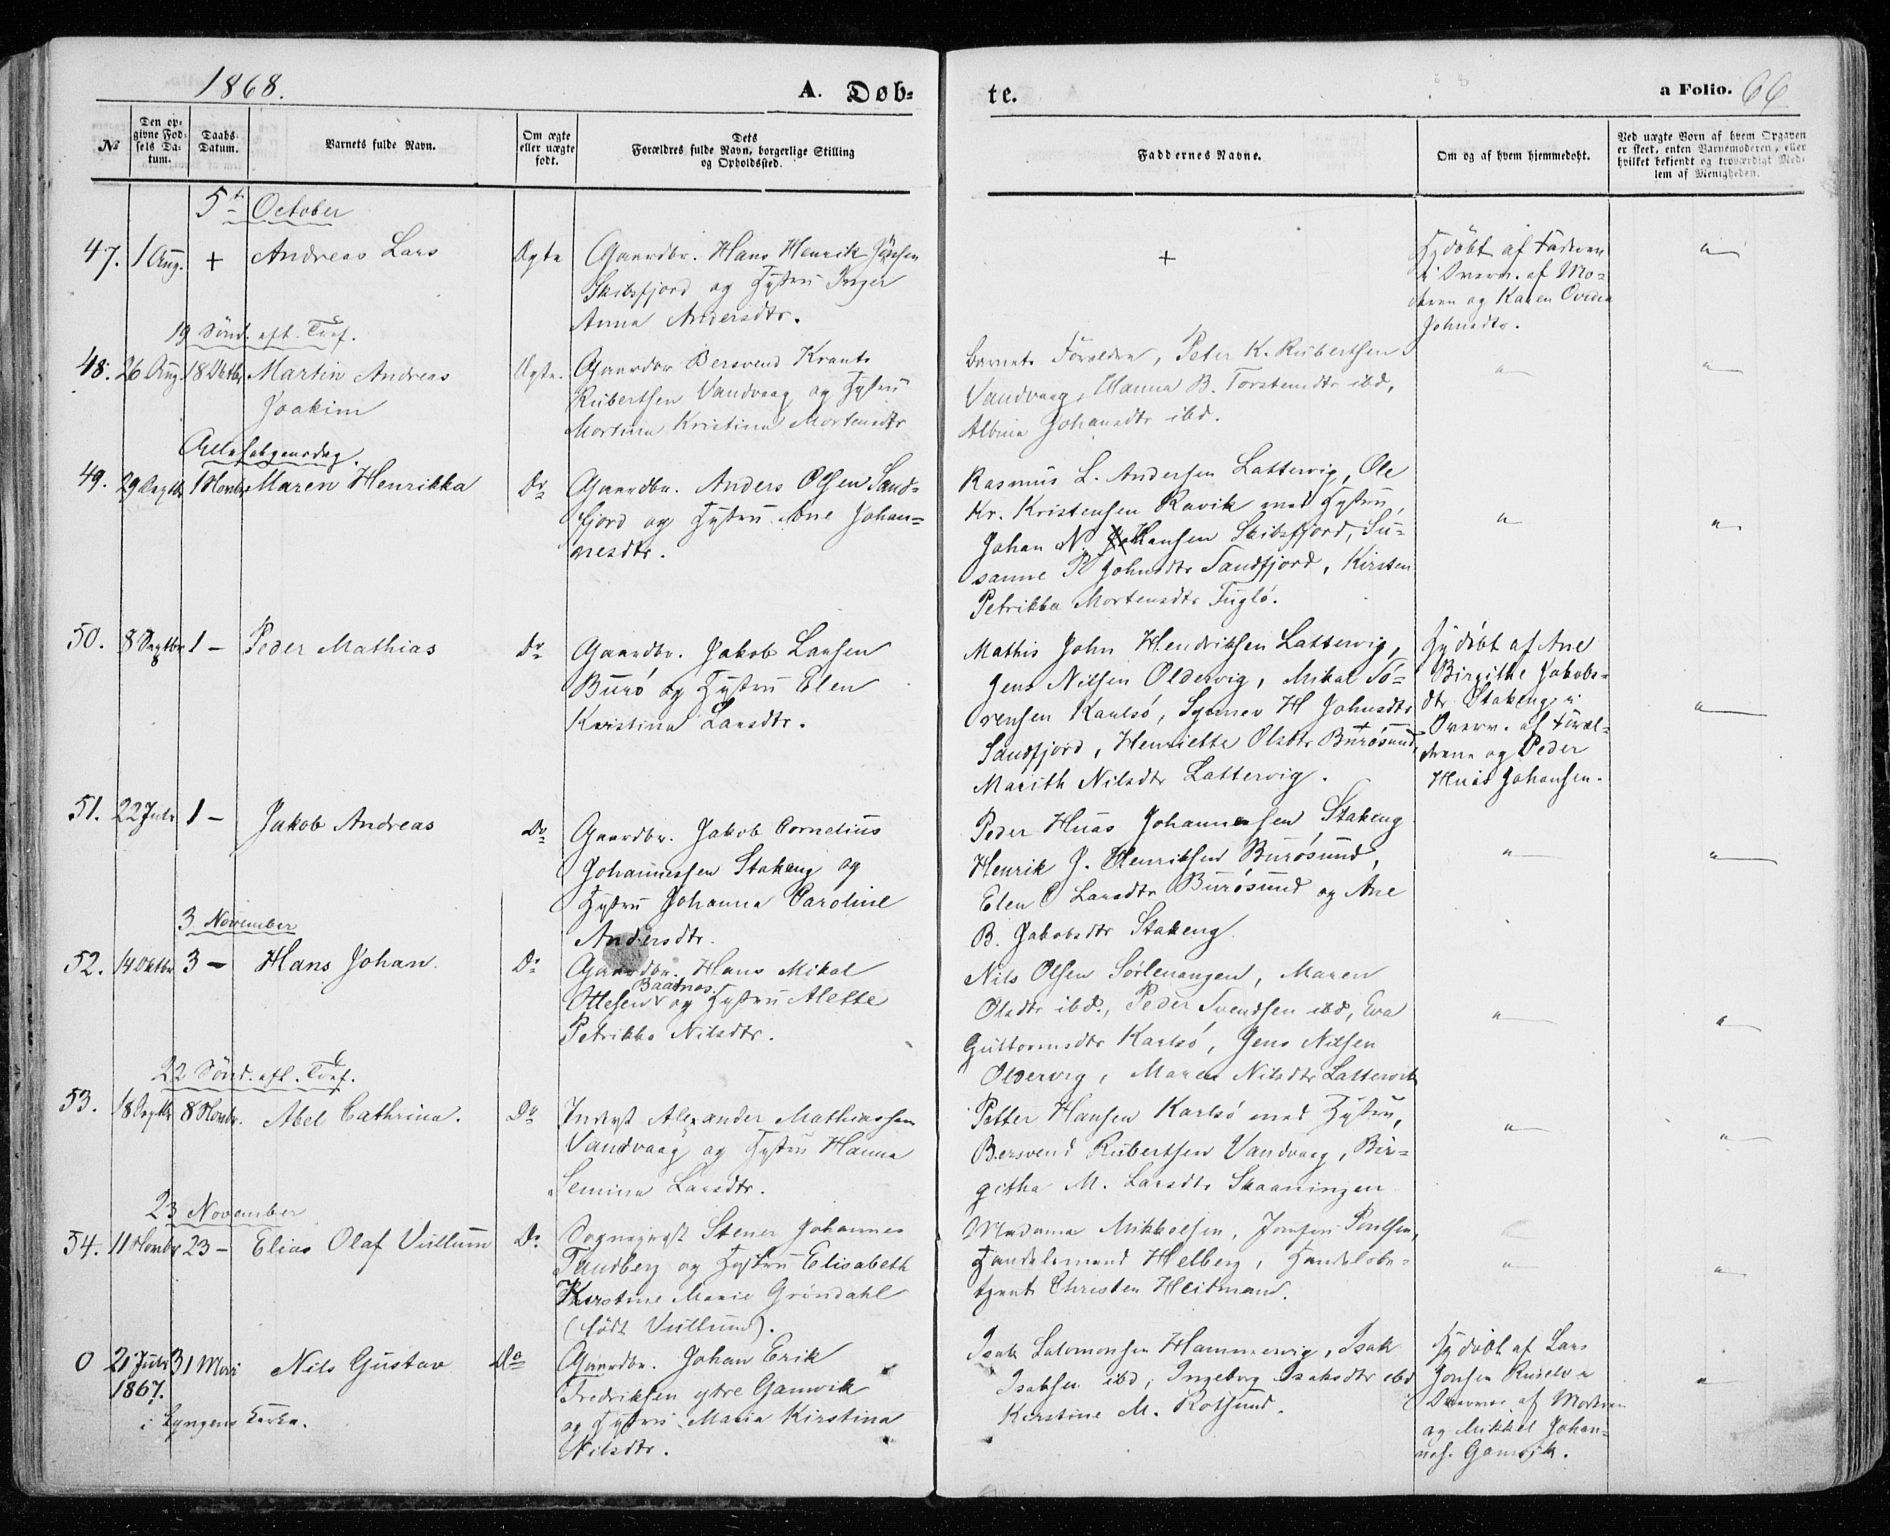 1868.
A. Døb-
te.
a Folio. 66
No
Den op-
givne Fød-
sels Da-
tum.
Daabs
Datum.
Barnets fulde Navn.
Om ægte
eller uægte
født.
Dets
Forældres fulde Navn, borgerlige Stilling
og Opholdssted.
Faddernes Navne.
Om og af hvem hjemmedøbt.
Ved uægte Børn af hvem Opgaven
er skeet, enten Barnemoderen, eller
hvilket bekjendt og troværdigt Med-
lem af Menigheden.
5te October
47. 1 Aug. + Andreas Lars
Ægte
Gaardbr. Hans Henrik Jensen
Skibsfjord og Hustru Inger
Anna Andersdtr.
+
Hjdøbt af Faderen
i Overv. af Mo-
deren og Karen
Johnsdtr.
19 Sønd. eft. Tref.
48. 26 Aug 18 Oktbr Martin Andreas
Joakim
Ægte.
Gaardbr Bersvend Krants
Rubertsen Vandvaag og Hustru
Mortina Kristina Mortensdtr
Barnets Forældre, Peter K. Rubertsen
Vandvaag, Hanna B. Torstensdtr ibd,
Albine Johansdtr ibd.
Allehelgensdag.
49. 29 Septbr 1 Novbr Maren Henrikka
Do
Gaardbr. Anders Olsen Sand-
fjord og Hustru Ane Johan-
nesdtr.
Rasmus L. Andersen Lattervig, Ole
Kr. Kristensen Ravik med Hustru,
Johan N. Hansen Skibsfjord, Su-
sanne P Johnsdtr Sandfjord, Kirsten
Petrikka Mortensdtr Fuglø.
50. 8 Septbr 1 - Peder Mathias
Do
Gaardbr. Jakob Larsen
Burø og Hustru Elen
Kristina Larsdtr.
Mathis John Hendriksen Lattervig,
Jens Nilsen Oldervig, Mikal Sø-
rensen Karlsø, Synnev H Johnsdtr
Sandfjord, Henriette Olsdtr Burøsund,
Marith Nilsdtr Lattervig.
Hjdøbt af Ane
Birgithe Jakobs-
dtr Stakeng i
Overv. af Foræl-
drene og Peder
Huas Johansen.
51. 22 Juli 1 - Jakob Andreas
Do
Gaardbr. Jakob Cornelius
Johannessen Stakeng og
Hustru Johanna Caroline
Andersdtr.
Peder Huas Johannesen Stakeng
Henrik J. Henriksen Burøsund,
Elen C Larsdtr Burøsund og Ane
B. Jakobsdtr Stakeng.
3 November
52. 14 Oktbr 3 - Hans Johan.
Do
Gaardbr. Hans Mikal
Baatnes.
Ottesen og Hustru Alette
Petrikka Nilsdtr.
Nils Olsen Sørlenangen, Maren
Olsdtr ibd., Peder Svendsen ibd, Eva
Guttormsdtr Karlsø, Jens Nilsen
Oldervig, Maren Nilsdtr Lattervik
22 Sønd. eft. Tref.
53. 18 Septbr 8 Novbr. Abel Cathrina.
Do
Inderst Alexander Mathiassen
Vandvaag og Hustru Hanna
Semina Larsdtr.
Petter Hansen Karlsø med Hustru,
Bersvend Rubertsen Vandvaag, Bir-
githa M. Larsdtr Skaaningen
23 November
54. 11 Novbr 23 - Elias Olaf Vullum
Do
Sognepræst Stener Johannes
Sandberg og Hustru Elisabeth
Kirstine Marie Grøndahl
(født Vullum).
Madame Mikkelsen, Jomfru Poulsen,
Handelsmand Helberg, Handelsbe-
tjent Christen Heitmann.
0 21 Juli 31 Mai Nils Gustav
1867.
i Lyngens Kirke.
Do
Gaardbr. Johan Erik
Fredriksen ytre Gamvik
og Hustru Maria Kirstina
Nilsdtr.
Isak Salomonsen Hammervig, Isak
Isaksen ibd, Ingeborg Isaksdtr ibd
Kerstine M. Rotsund.
Hjdøbt af Lars
Jonsen i
af Moderen
og Mikkel Johan-
nes. Gamvik.